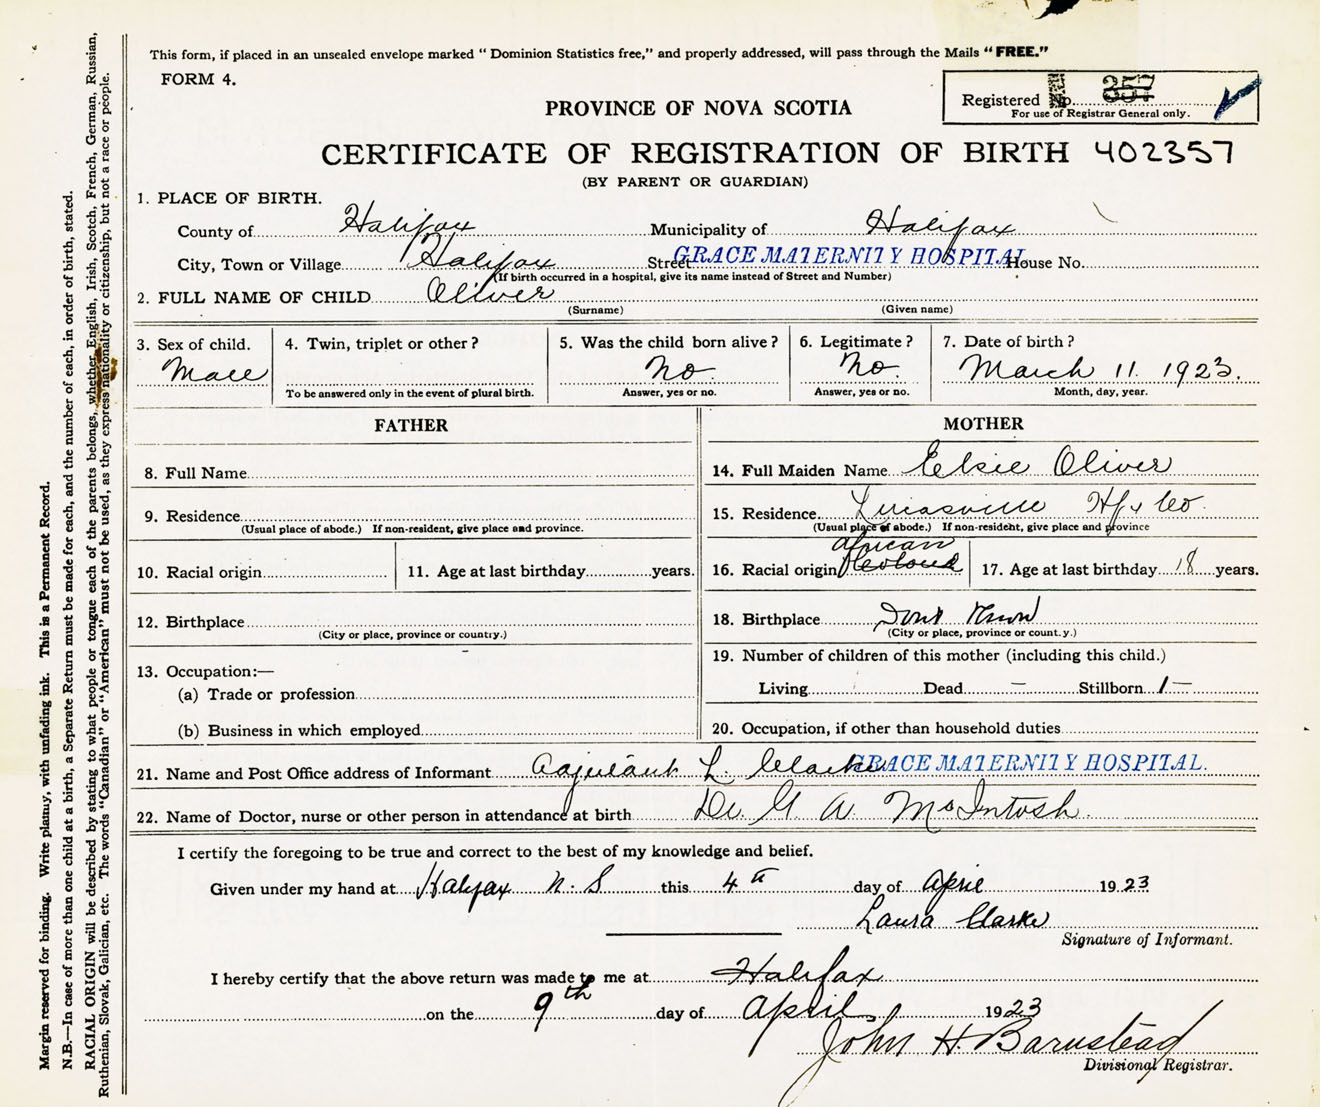 This form, if placed in an unsealed envelope marked “ Dominion Statistics free,” and properly addressed, will pass through the Mails “ FREE.”
FORM 4.
Registered No. 357
For use of Registrar General only.
PROVINCE OF NOVA SCOTIA
CERTIFICATE OF REGISTRATION OF BIRTH 402357
(BY PARENT OR GUARDIAN)
1. PLACE OF BIRTH.
County of Halifax Municipality of Halifax
City, Town or Village Halifax Street GRACE MATERNITY HOSPITAL House No.
(If birth occurred in a hospital, give its name instead of Street and Number)
2. FULL NAME OF CHILD Oliver
(Surname) (Given name)
3. Sex of child. 4. Twin, triplet or other? 5. Was the child born alive? 6. Legitimate? 7. Date of birth?
Male No. No. March 11. 1923.
To be answered only in the event of plural birth. Answer, yes or no. Answer, yes or no. Month, day, year.
FATHER MOTHER
8. Full Name 14. Full Maiden Name Elsie Oliver
9. Residence 15. Residence Lucasville Hfx Co
(Usual place of abode.) If non-resident, give place and province. (Usual place of abode.) If non-resident, give place and province
African
10. Racial origin 11. Age at last birthday years. 16. Racial origin 17. Age at last birthday 18 years.
12. Birthplace 18. Birthplace Dont Know
(City or place, province or country.) (City or place, province or count.y.)
13. Occupation:— 19. Number of children of this mother (including this child.)
(a) Trade or profession Living Dead — Stillborn 1 —
(b) Business in which employed 20. Occupation, if other than household duties
21. Name and Post Office address of Informant Adjutant L. Clarke GRACE MATERNITY HOSPITAL.
22. Name of Doctor, nurse or other person in attendance at birth Dr. G. A. McIntosh.
I certify the foregoing to be true and correct to the best of my knowledge and belief.
Given under my hand at Halifax N. S this 4th day of April 1923
Laura Clarke
Signature of Informant.
I hereby certify that the above return was made to me at Halifax
on the 9th day of April 1923
John H. Barnstead
Divisional Registrar.
Margin reserved for binding. Write plainly, with unfading ink. This is a Permanent Record.
N.B.—In case of more than one child at a birth, a Separate Return must be made for each, and the number of each, in order of birth, stated.
RACIAL ORIGIN will be described by stating to what people or tongue each of the parents belongs, whether English, Irish, Scotch, French, German, Russian,
Ruthenian, Slovak, Galician, etc. The words “Canadian” or “American” must not be used, as they express nationality or citizenship, but not a race or people.